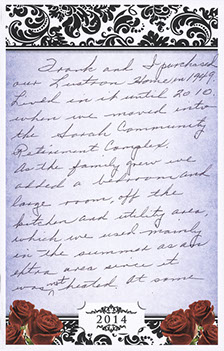 Frank and I purchased
our Lustron Home in 1949.
Lived in it until 2010.
when we moved into
the Sarah Community
Retirement Complex.
As the family grew we
added a bedroom and
large room, off the
kitchen and utility area,
which we used mainly
in the summer as an
extra area since it
was not heated. At some
2014